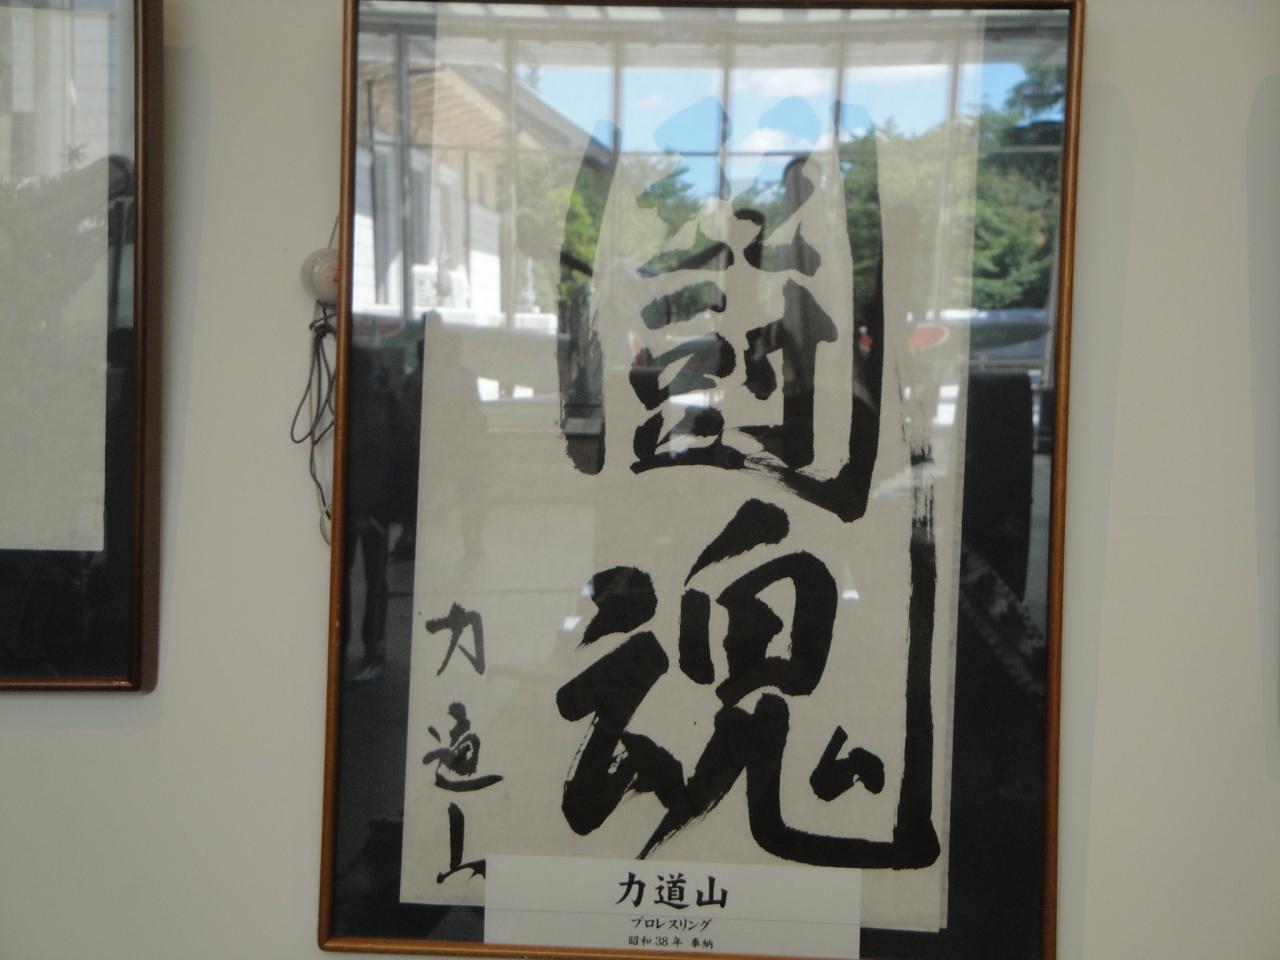 闘魂
力道山
力道山
プロレスリング
昭和38年 奉納